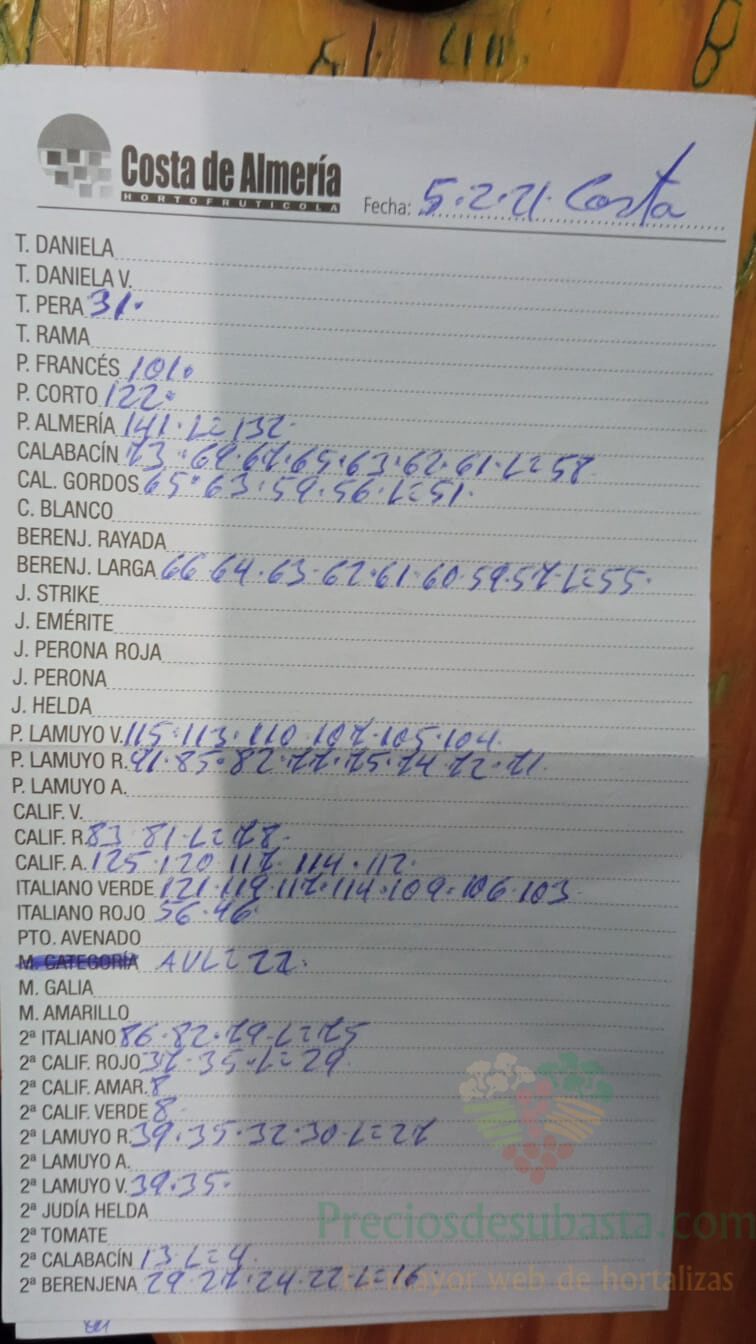 Costa de Almería
HORTOFRUTICOLA
Fecha: 5.2.21. Costa
T. DANIELA
T. DANIELA V.
T. PERA 31.
T. RAMA
P. FRANCÉS 101.
P. CORTO 122.
P. ALMERÍA 141. L=132.
CALABACÍN 73.69.67.65.63.62.61.L=58
CAL. GORDOS 65.63.59.56.L=51.
C. BLANCO
BERENJ. RAYADA
BERENJ. LARGA 66 64.63.62.61.60.59.57.L=55.
J. STRIKE
J. EMÉRITE
J. PERONA ROJA
J. PERONA
J. HELDA
P. LAMUYO V. 115.113.110.107.105.104.
P. LAMUYO R. 91.85.82.77.75.74.72.71.
P. LAMUYO A.
CALIF. V.
CALIF. R. 83 81.L=78.
CALIF. A. 125.120 117.114.112.
ITALIANO VERDE 121.119.117.114.109.106.103
ITALIANO ROJO 56.46.
PTO. AVENADO
M. CATEGORÍA AVL=22.
M. GALIA
M. AMARILLO
2ª ITALIANO 86.82.79.L=75
2ª CALIF. ROJO 37.35.L=29
2ª CALIF. AMAR. 8
2ª CALIF. VERDE 8.
2ª LAMUYO R. 39.35.32.30.L=27
2ª LAMUYO A.
2ª LAMUYO V. 39.35.
2ª JUDÍA HELDA
2ª TOMATE
2ª CALABACÍN 13.L=4.
2ª BERENJENA 29.27.24.22.L=16.
Preciosdesubasta.com
La mayor web de hortalizas